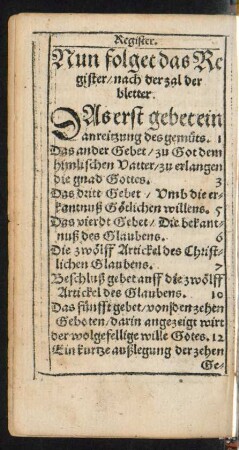 Register.
Nun folget das Re
gister / nach der zal der
bletter.
DAs erst gebet ein
anreitzung des gemüts. 1
Das ander Gebet / zu Got dem
himlischen Vatter / zu erlangen
die gnad Gottes. 3
Das dritt Gebet / Vmb die er-
kantnuß Götlichen willens. 5
Das vierdt Gebet / Die bekant-
nuß des Glaubens. 6
Die zwölff Artickel des Christ-
lichen Glaubens. 7
Beschluß gebet auff die zwölff
Artickel des Glaubens. 10
Das fünfft gebet / von den zehen
Geboten / darin angezeigt wirt
der wolgefellige wille Gotes. 12
Ein kurtze außlegung der zehen
Ge-